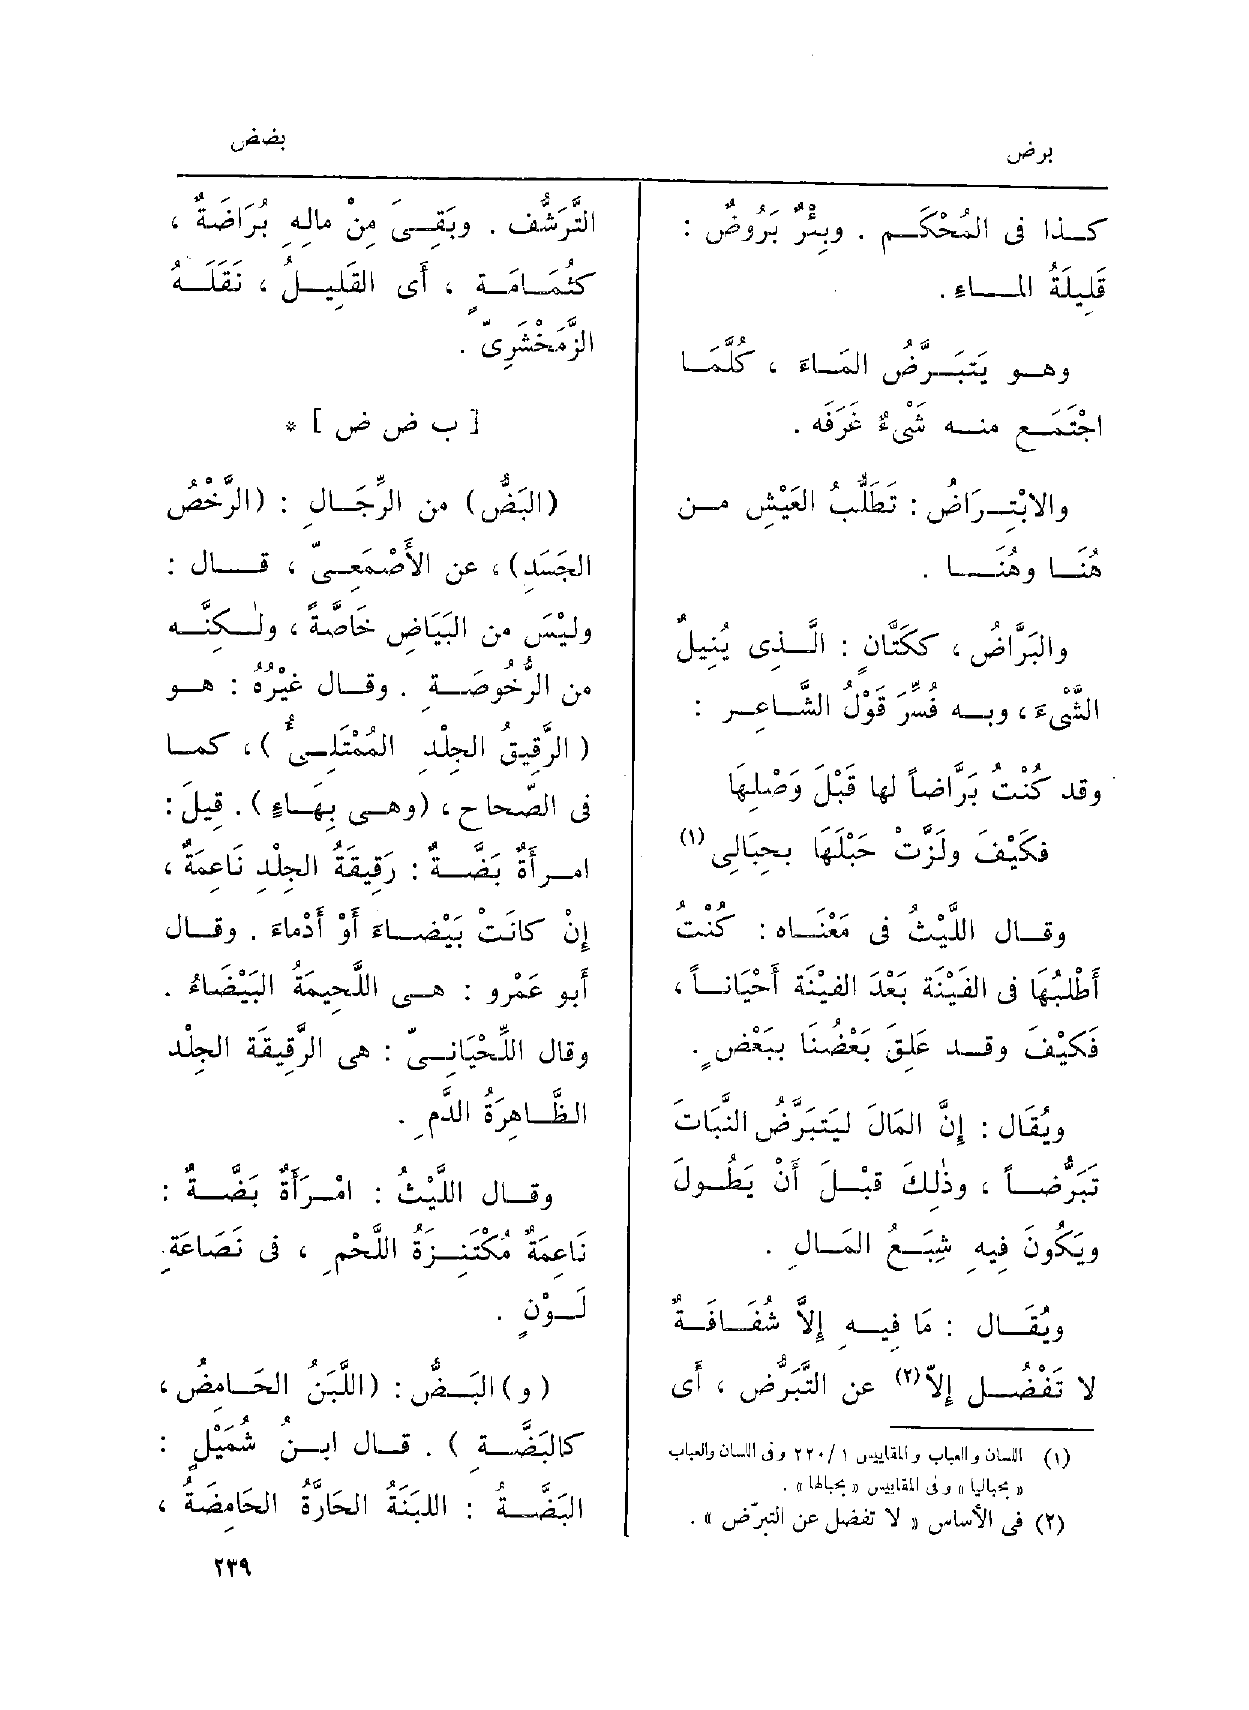 برض
بضض
كـذا فى المُحْكَـم . وبِئْرٌ بَرُوضٌ :
قَلِيلَةُ المـاء .
وهـو يَتَبَـرَّضُ المَـاءَ ، كُلَّمَـا
اجْتَمَـع منـه شَىْءٌ غَرَفَه .
والابْتِـرَاضُ : تَطَلُّبُ العَيْشِ مـن
هُنَـا وهُنَـا .
والبَرَّاضُ ، ككَتَّانٍ : الَّـذِى يُنِيلُ
الشَّىْءَ ، وبـه فُسِّرَ قَوْلُ الشَّـاعِـر :
وقد كُنْتُ بَرَّاضاً لها قَبْلَ وَصْلِهَا
فكَيْفَ ولَزَّتْ حَبْلَهَا بحِبَالِى (١)
وقـال اللَّيْثُ فى مَعْنَـاه : كُنْتُ
أَطْلُبُهَا فى الفَيْنَة بَعْدَ الفَيْنَة أَحْيَانـاً ،
فكَيْفَ وقـد عَلِقَ بَعْضُنَا ببَعْضٍ .
ويُقَال : إِنَّ المَالَ لَيَتَبَرَّضُ النَّبَاتَ
تَبَرُّضـاً ، وذٰلِكَ قَبْـلَ أَنْ يَطُـولَ
ويَكُونَ فِيهِ شِبَـعُ المَـالِ .
ويُقَـال : مَا فِيـهِ إِلاَّ شُفَـافَـةٌ
لا تَفْضُـل إِلاّ (٢) عن التَّبَرُّضِ ، أَى
(١) اللسان والعباب والمقاييس ٢٢٠/١ وفى اللسان والعباب
« بحباليا » وفى المقاييس « بحبالها » .
(٢) فى الأساس « لا تفضل عن التبرّض » .
التَّرَشُّف . وبَقِـىَ مِنْ مالِهِ بُرَاضَـةٌ ،
كثُمَـامَـةٍ ، أَى القَلِيـلُ ، نَقَلَـهُ
الزَّمَخْشَرِىّ .
[ ب ض ض ] *
(البَضُّ) من الرِّجَـالِ : (الرَّخْصُ
الجَسَدِ) ، عن الأَصْمَعِـىّ ، قـال :
ولَيْسَ من البَيَاضِ خَاصَّةً ، ولٰـكنَّـه
من الرُّخُوصَـةِ . وقـال غَيْرُهُ : هـو
( الرَّقِيقُ الجِلْدِ المُمْتَلِـىُّ ) ، كمـا
فى الصّحاح ، (وهـى بِهَـاءٍ ) . قِيلَ :
امـرأَةٌ بَضَّـةٌ : رَقِيقَةُ الجِلْدِ نَاعِمَةٌ ،
إِنْ كانَتْ بَيْضَـاءَ أَوْ أَدْماءَ . وقـال
أَبو عَمْرٍو : هـى اللَّحِيمَةُ البَيْضَاءُ .
وقال اللِّحْيَانِـىّ : هى الرَّقِيقَة الجِلْد
الظَّـاهِرَةُ الدَّمِ .
وقـال اللَّيْثُ : امْـرَأَةٌ بَضَّـةٌ :
نَاعِمَةٌ مُكْتَنِـزَةُ اللَّحْمِ ، فى نَصَاعَةِ
لَـوْنٍ .
( و) البَـضُّ : (اللَّبَنُ الحَـامِضُ ،
كالبَضَّـةِ ) . قـال ابـنُ شُمَيْلٍ :
البَضَّـةُ : اللبَنَةُ الحَارَّةُ الحَامِضَةُ ،
٢٣٩